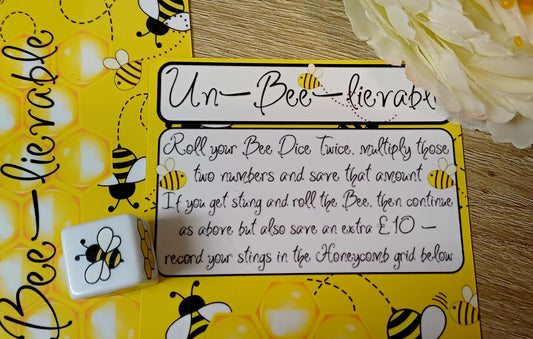 Bee-lievable
Un-Bee-lievabl
Roll your Bee Dice Twice, multiply those
two numbers and save that amount
If you get stung and roll the Bee, then continue
as above but also save an extra £10 -
record your stings in the Honeycomb grid below